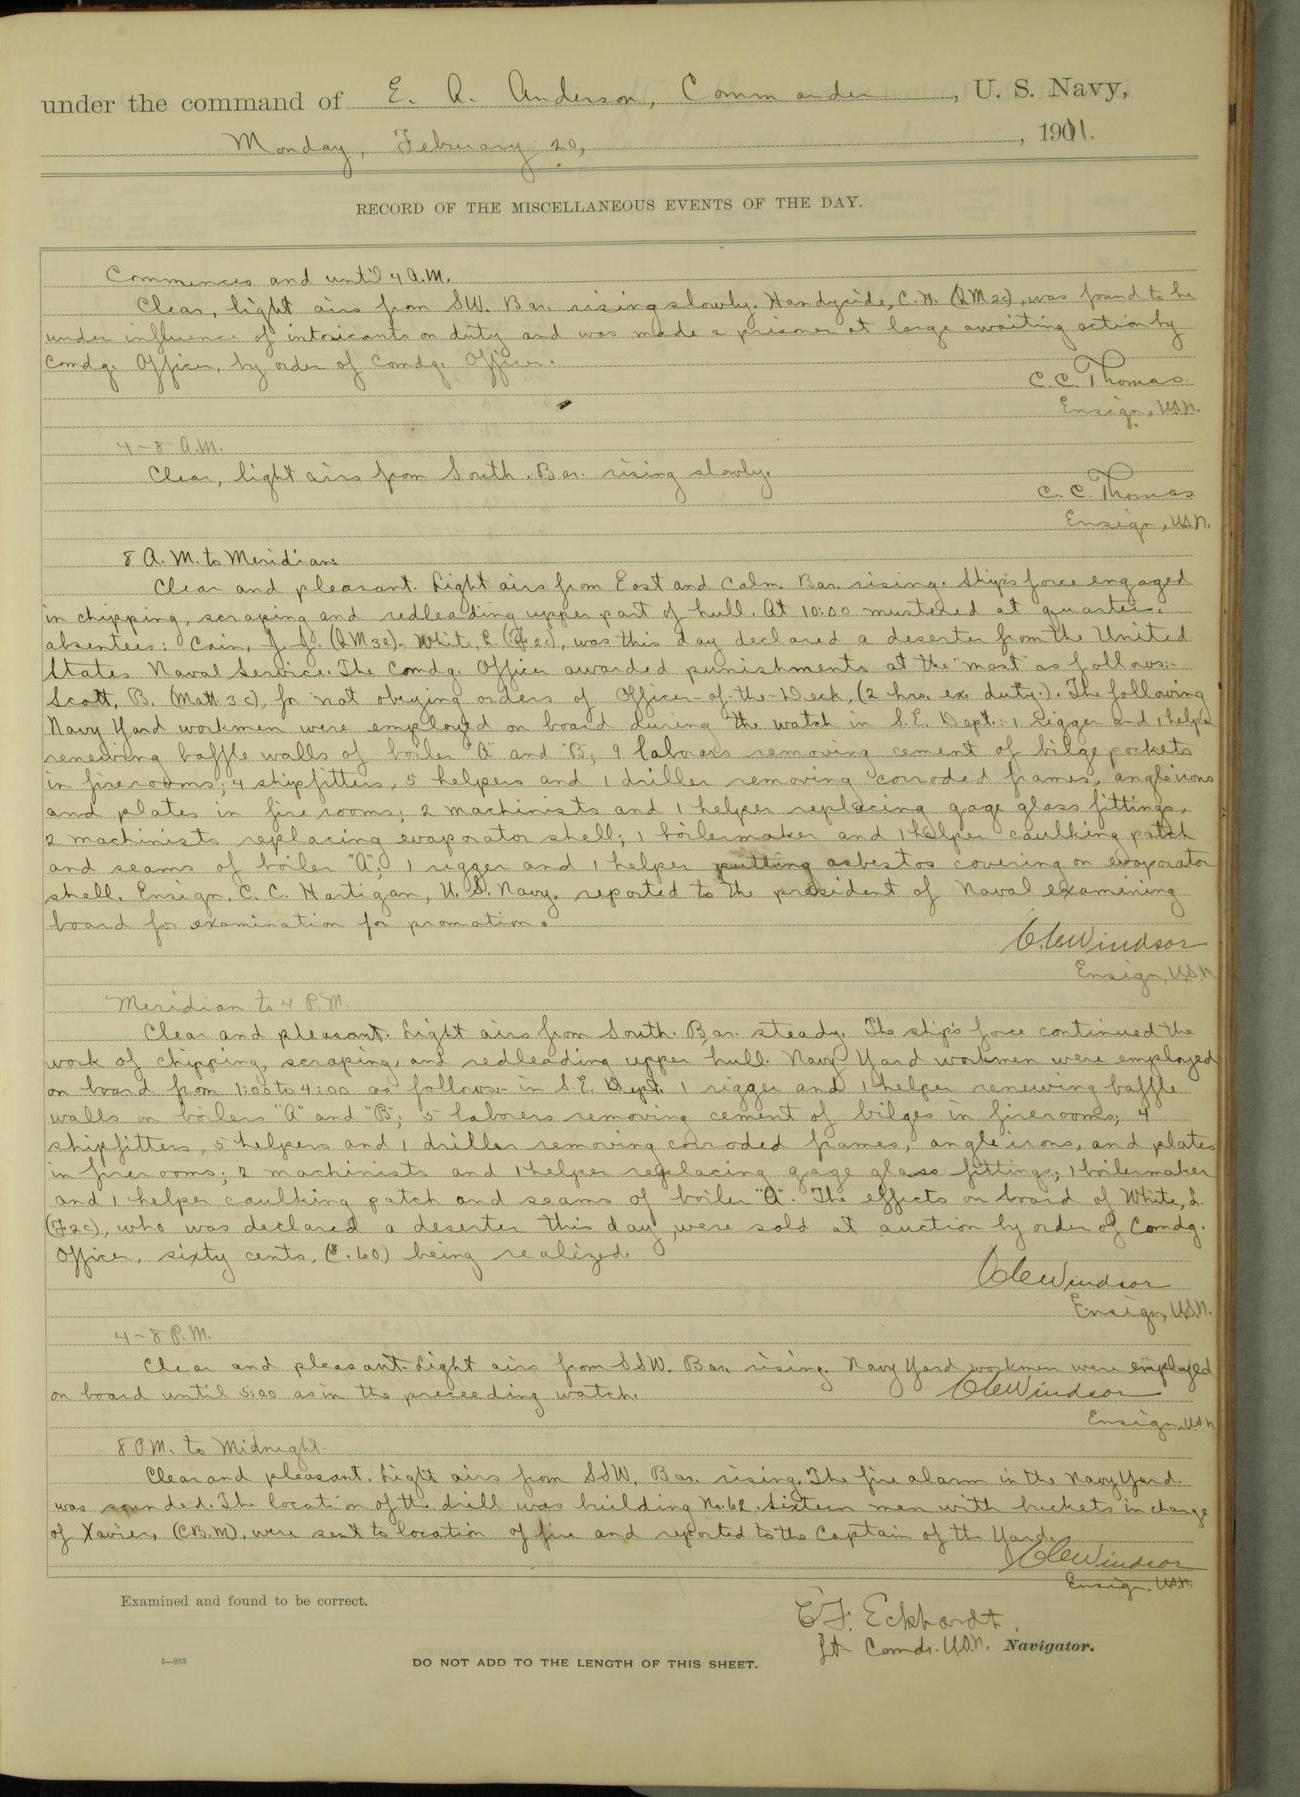 under the command of E. A. Anderson, Commander, U. S. Navy,
Monday, February 20, 1911.
RECORD OF THE MISCELLANEOUS EVENTS OF THE DAY.
Commences and until 4 A.M.
Clear, light airs from SW. Bar. rising slowly. Handyside, C. H. (QM2c), was found to be
under influence of intoxicants on duty and was made a prisoner at large awaiting action by
Comdg. Officer, by order of Comdg. Officer.
C. C. Thomas.
Ensign, USN.
4-8 A.M.
Clear, light airs from South. Bar. rising slowly.
C. C. Thomas
Ensign, U.S.N.
8 A.M. to Meridian.
Clear and pleasant. Light airs from East and Calm. Bar. rising. Ship's force engaged
in chipping, scraping and redleading upper part of hull. At 10:00 mustered at quarters.
absentees: Cain, J. J. (QM3c). White, L. (F2c), was this day declared a deserter from the United
States Naval Service. The Comdg. Officer awarded punishments at the "mast" as follows:-
Scott, B. (Matt 3c), for not obeying orders of Officer-of-the-Deck, (2 hrs. ex. duty.). The following
Navy Yard workmen were employed on board during the watch in S.E. Dept.:- 1 rigger and 1 helper
renewing baffle walls of boiler "A" and "B"; 9 laborers removing cement of bilge pockets
in firerooms; 4 shipfitters, 5 helpers and 1 driller removing corroded frames, angle irons
and plates in fire rooms; 2 machinists and 1 helper replacing gage glass fittings,
2 machinists replacing evaporator shell; 1 boilermaker and 1 helper caulking patch
and seams of boiler "A"; 1 rigger and 1 helper putting asbestos covering on evaporator
shell. Ensign, C. C. Hartigan, U. S. Navy, reported to the president of Naval examining
board for examination for promotion.
C.C. Windsor
Ensign, U.S.N
Meridian to 4 P.M.
Clear and pleasant. Light airs from South. Bar. steady. The ship's force continued the
work of chipping, scraping, and redleading upper hull. Navy Yard workmen were employed
on board from 1:00 to 4:00 as follows:- in S.E. Dept. 1 rigger and 1 helper renewing baffle
walls on boilers "A" and "B"; 5 laborers removing cement of bilges in firerooms; 4
shipfitters, 5 helpers and 1 driller removing corroded frames, angle irons, and plates
in firerooms; 2 machinists and 1 helper replacing gage glass fittings; 1 boilermaker
and 1 helper caulking patch and seams of boiler "A". The effects on board of White, L.
(F2c), who was declared a deserter this day, were sold at auction by order of Comdg.
Officer, sixty cents, ($.60) being realized.
C.C. Windsor
Ensign, U.S.N.
4-8 P.M.
Clear and pleasant. Light airs from SSW. Bar. rising. Navy Yard workmen were employed
on board until 5:00 as in the preceeding watch.
C.C. Windsor
Ensign, U.S.N
8 P.M. to Midnight.
Clear and pleasant. Light airs from SSW. Bar. rising. The fire alarm in the Navy Yard
was sounded. The location of the drill was building No. 62. Sixteen men with buckets in charge
of Xavier, (CBM), were sent to location of fire and reported to the Captain of the Yard.
C.C. Windsor
Ensign, U.S.N.
Examined and found to be correct.
E F. Eckhardt.
Lt Comdr. U.S.N. Navigator.
DO NOT ADD TO THE LENGTH OF THIS SHEET.